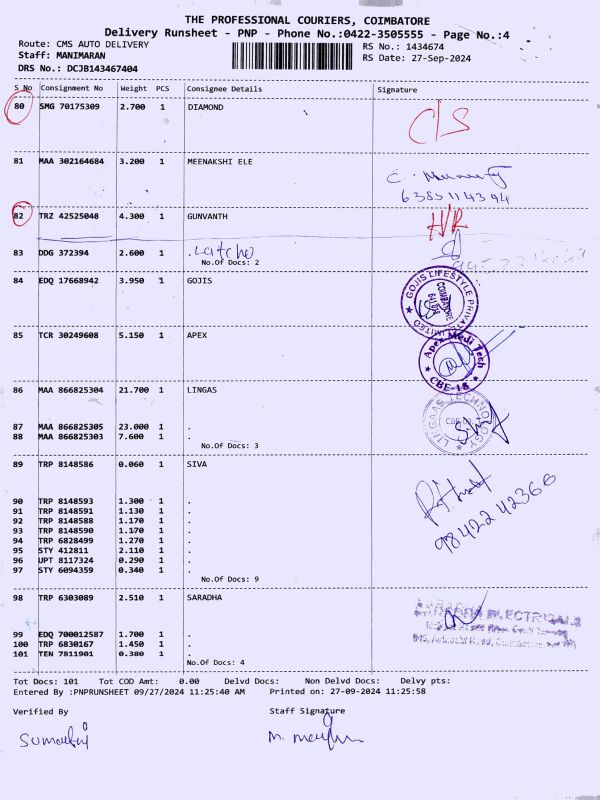 THE PROFESSIONAL COURIERS, COIMBATORE
Delivery Runsheet - PNP - Phone No.:0422-3505555 - Page No.:4
Route: CMS AUTO DELIVERY RS No.: 1434674
Staff: MANIMARAN RS Date: 27-Sep-2024
DRS No.: DCJB143467404
S No Consignment No Weight PCS Consignee Details Signature
80 SMG 70175309 2.700 1 DIAMOND
C/S
81 MAA 302164684 3.200 1 MEENAKSHI ELE
6385114394
82 TRZ 42525048 4.300 1 GUNVANTH
83 DDG 372394 2.600 1 .
No.Of Docs: 2
84 EDQ 17668942 3.950 1 GOJIS
GOJIS LIFESTYLE PRIVATE LIMITED
COIMBATORE
85 TCR 30249608 5.150 1 APEX
Apex Medi Tech
CBE-18
86 MAA 866825304 21.700 1 LINGAS
LINGAAS TECHNOLOGY
87 MAA 866825305 23.000 1 .
88 MAA 866825303 7.600 1 .
No.Of Docs: 3
89 TRP 8148586 0.060 1 SIVA
90 TRP 8148593 1.300 1 .
91 TRP 8148591 1.130 1 .
92 TRP 8148588 1.170 1 .
93 TRP 8148590 1.170 1 .
94 TRP 6828499 1.270 1 .
95 STY 412811 2.110 1 .
96 UPT 8117324 0.290 1 .
97 STY 6094359 0.340 1 .
No.Of Docs: 9
9842242366
98 TRP 6303089 2.510 1 SARADHA
99 EDQ 700012587 1.700 1 .
100 TRP 6830167 1.450 1 .
101 TEN 7811901 0.380 1 .
No.Of Docs: 4
Tot Docs: 101 Tot COD Amt: 0.00 Delvd Docs: Non Delvd Docs: Delvy pts:
Entered By :PNPRUNSHEET 09/27/2024 11:25:40 AM Printed on: 27-09-2024 11:25:58
Verified By Staff Signature